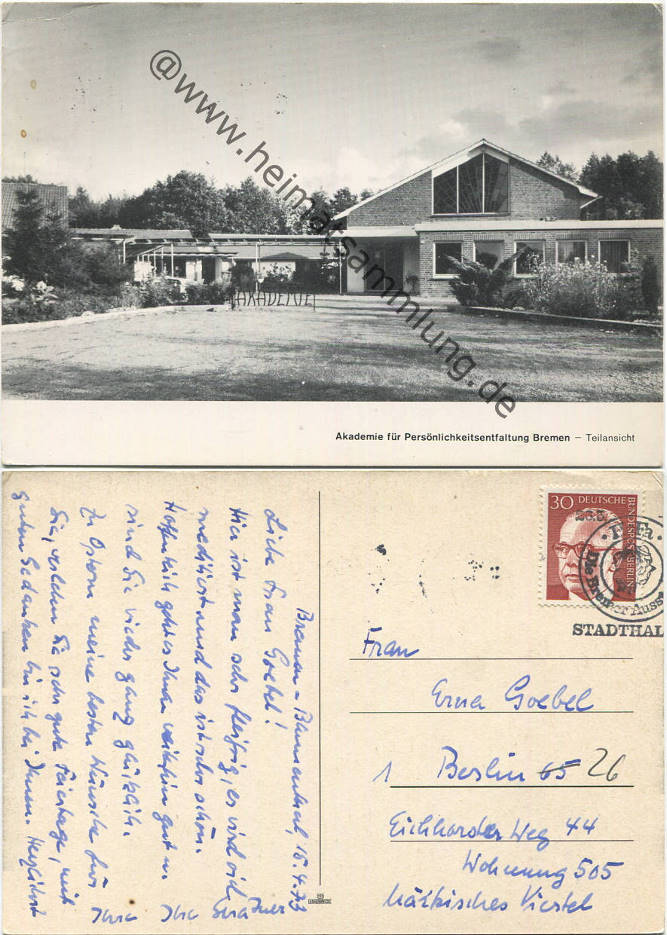 @www.heimatsammlung.de
AKADEMIE
Akademie für Persönlichkeitsentfaltung Bremen – Teilansicht
Bremen-Blumenthal, 16.4.73
Liebe Frau Goebel!
Hier ist man sehr fleißig, es wird viel
meditiert und das ist sehr schön.
Hoffentlich geht es Ihnen weiterhin gut u.
sind Sie wieder ganz glücklich.
Zu Ostern meine besten Wünsche für
Sie, erleben Sie sehr gute Feiertage, mit
guten Gedanken bin ich bei Ihnen. Herzlichst
Ihre
30 DEUTSCHE
BUNDESPOST BERLIN
Die Bremer Auss
STADTHAL
Frau
Erna Goebel
1 Berlin 65 26
Eichhorster Weg 44
Wohnung 505
Märkisches Viertel